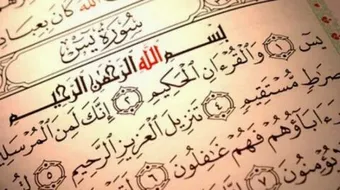 ٱللَّهَ كَانَ بِعِبَادِ
سُورَةُ يسٓ
بِسْمِ ٱللَّهِ ٱلرَّحْمَٰنِ ٱلرَّحِيمِ
يسٓ ١ وَٱلْقُرْءَانِ ٱلْحَكِيمِ ٢ إِنَّكَ لَمِنَ ٱلْمُرْسَلِ
صِرَٰطٍ مُّسْتَقِيمٍ ٤ تَنزِيلَ ٱلْعَزِيزِ ٱلرَّحِيمِ ٥
ءَابَآؤُهُمْ فَهُمْ غَٰفِلُونَ ٦
يُؤْمِنُونَ